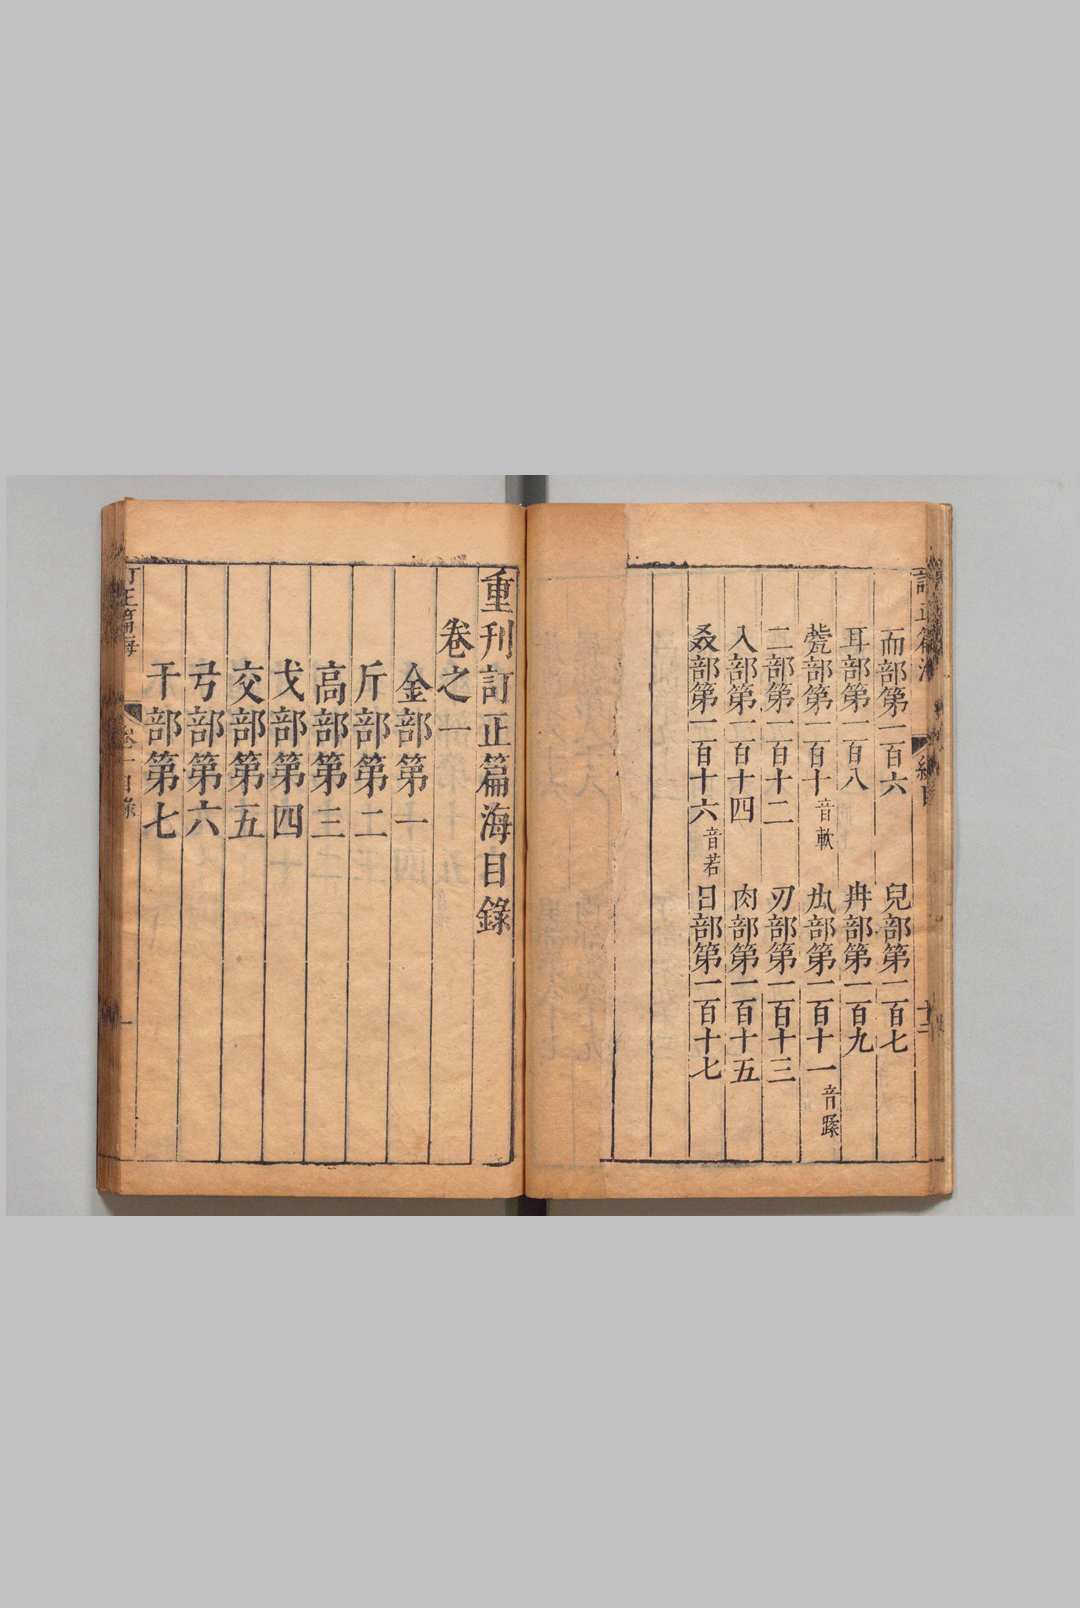 而部第一百六 兒部第一百七
耳部第一百八 冉部第一百九
㼱部第一百十音軟 部第一百十一音
二部第一百十二 刃部第一百十三
入部第一百十四 肉部第一百十五
叒部第一百十六音若 日部第一百十七
重刊訂正篇海目錄
卷之一
金部第一
斤部第二
高部第三
戈部第四
交部第五
弓部第六
干部第七
訂正篇海 卷一目錄 一